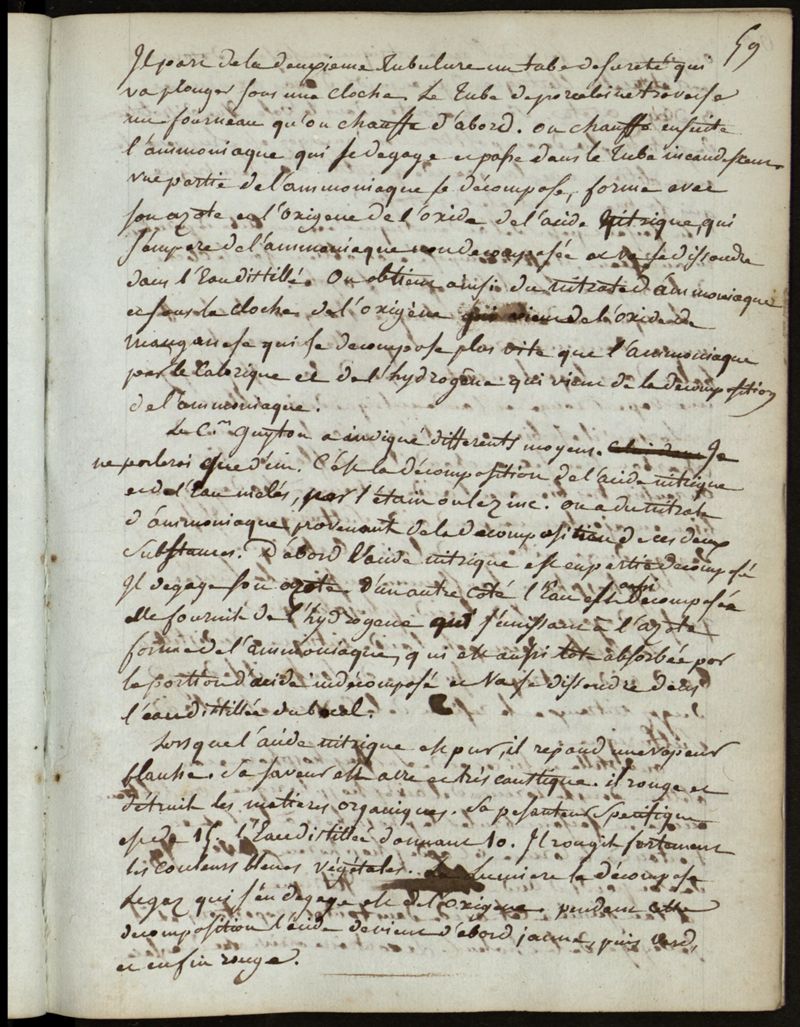 59
Il part de la deuxieme tubulure un tube de sureté qui
va plonger sous une cloche. Le tube de porcelaine traverse
un fourneau qu'on chauffe d'abord. on chauffe ensuite
l'ammoniaque qui se degage et passe dans le tube incandescent
une partie de l'ammoniaque se décompose, forme avec
son azote et l'oxigene de l'oxide de l'acide nitrique, qui
s'empare de l'ammoniaque non decomposée et va se dissoudre
dans l'Eau distillé. On obtient ainsi du nitrate d'ammoniaque
et sous la cloche de l'oxigène qui vient de l'oxide de
manganese qui se decompose plus vite que l'ammoniaque
par le calorique et de l'hydrogène qui vient de la decomposition
de l'ammoniaque.
Le C.en Guyton a indiqué differents moyens. Je
ne parlerai que d'un. C'est la décomposition de l'acide nitrique
et de l'Eau melés, par l'étain ou le zinc. on a du nitrate
d'ammoniaque provenant de la decomposition de ces deux
substances. D'abord l'acide nitrique est en partie decomposé
Il degage son azote. D'un autre coté l'Eau est aussi decomposée
elle fournit de l'hydrogene qui s'unissant à l'azote
forme de l'ammoniaque, qui est aussitot absorbée par
la portion d'acide indécomposé et va se dissoudre dans
l'eau distillée du bocal.
Lorsque l'acide nitrique est pur, il repand une vapeur
blanche. Sa saveur est acre et très caustique. il ronge et
détruit les matieres organiques. Sa pesanteur spécifique
est de 15, l'Eau distillée donnant 10. Il rougit fortement
les couleurs bleues végétales. La lumiere le décompose
Le gaz qui s'en degage est de l'oxigene. pendant cette
decomposition l'acide devient d'abord jaune, puis verd,
et enfin rouge.